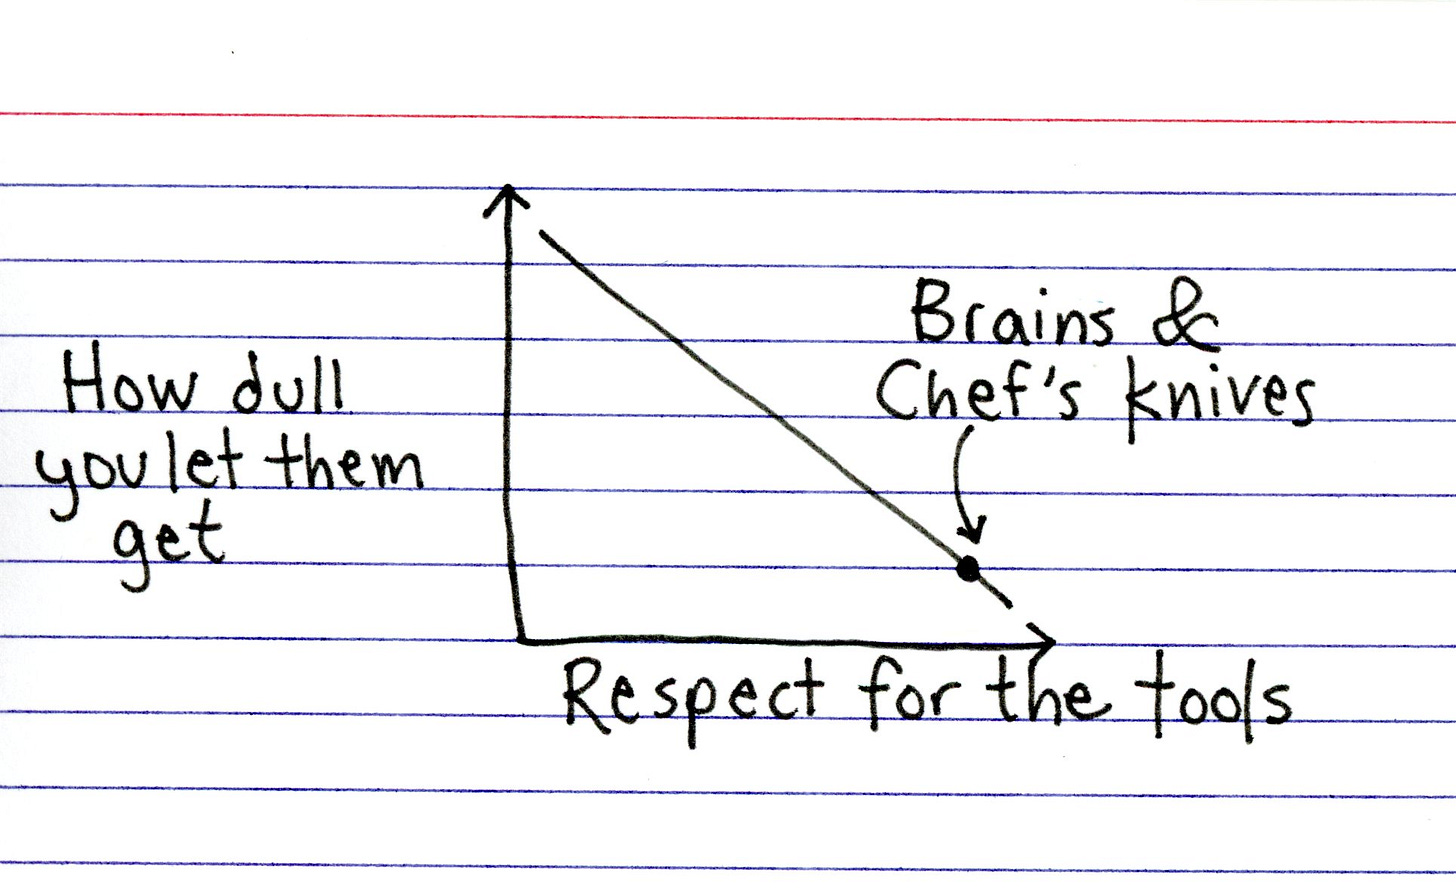 How dull
you let them
get
Brains &
Chef's knives
Respect for the tools